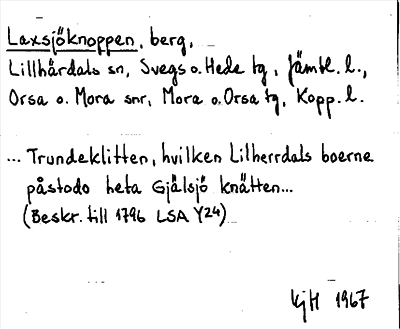 Laxsjöknoppen, berg,
Lillhärdals sn, Svegs o. Hede tg, Jämtl. l.,
Orsa o. Mora snr, Mora o. Orsa tg, Kopp. l.
... Trundeklitten, hvilken Lilherrdals boerne
påstodo heta Gjälsjö knätten...
(Beskr. till 1796 LSA Y24)
KjH 1967